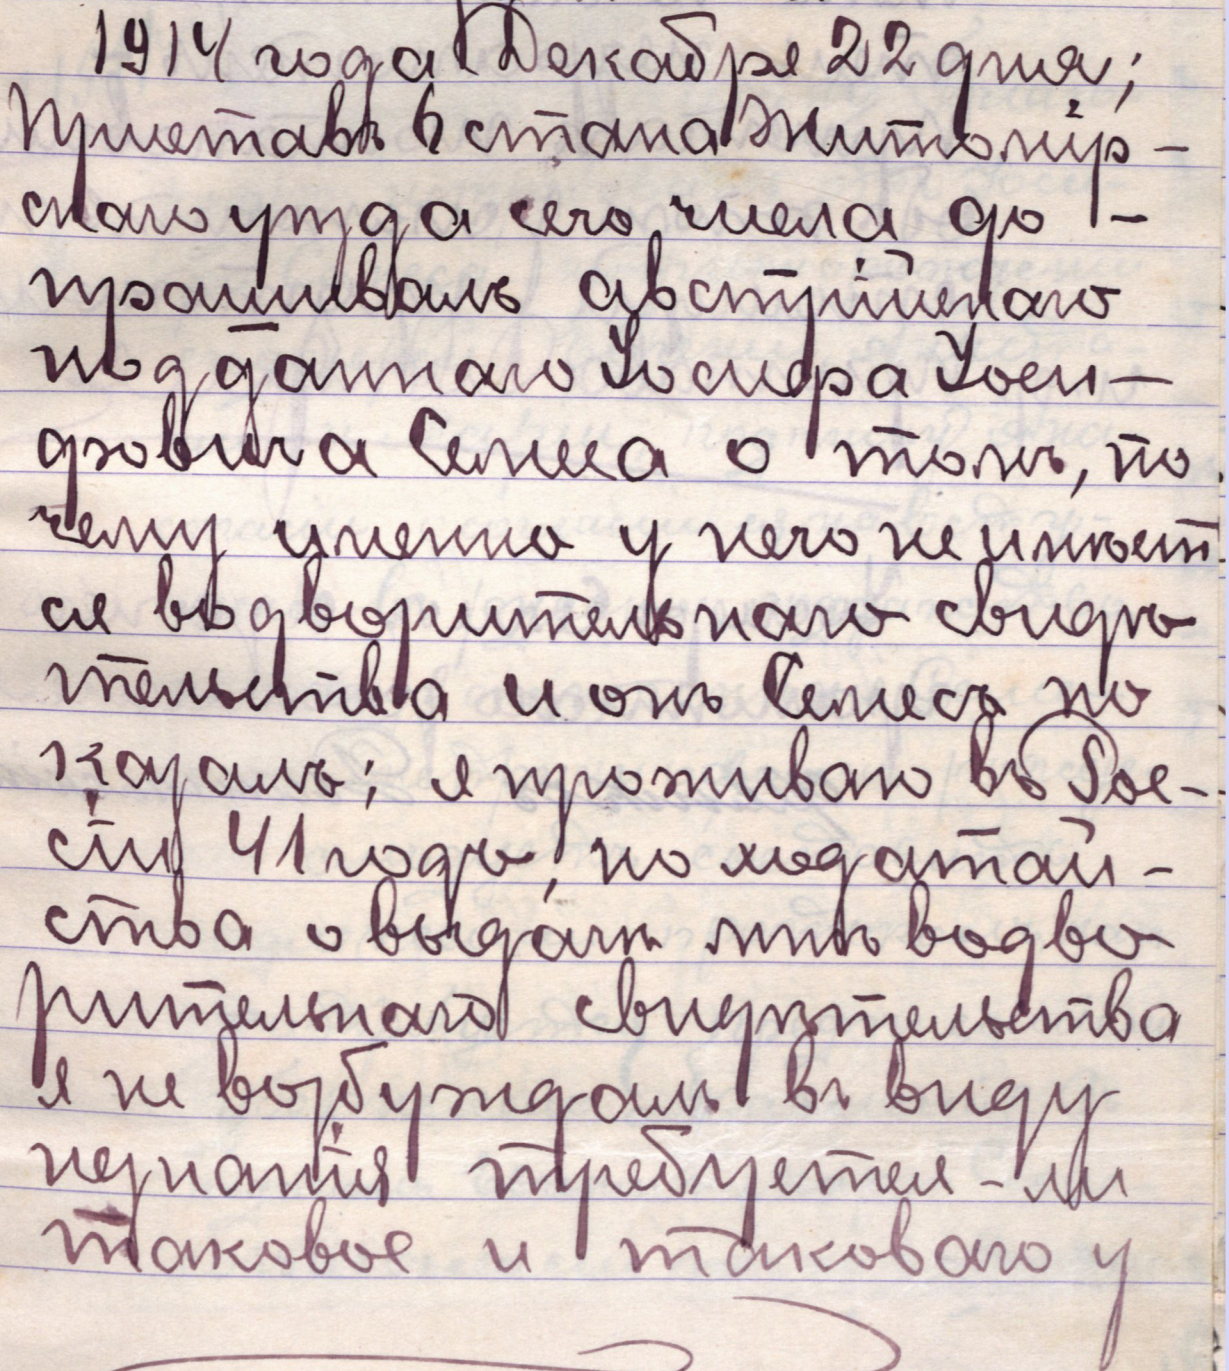 1914 года Декабря 22 дня;
Приставъ 6 стана Житомір-
скаго уѣзда сего числа до-
прашивалъ австрійскаго
подданнаго Іосифа Іоси-
фовича Семеса о томъ, по
чему именно у него не имѣет
ся водворительнаго свидѣ
тельства и онъ Семесъ по
казалъ; я проживаю въ Рос-
сіи 41 годъ, но ходатай-
ства о выдачѣ мнѣ водво
рительнаго свидѣтельства
я не возбуждалъ въ виду
незнанія требуется-ли
таковое и таковаго у